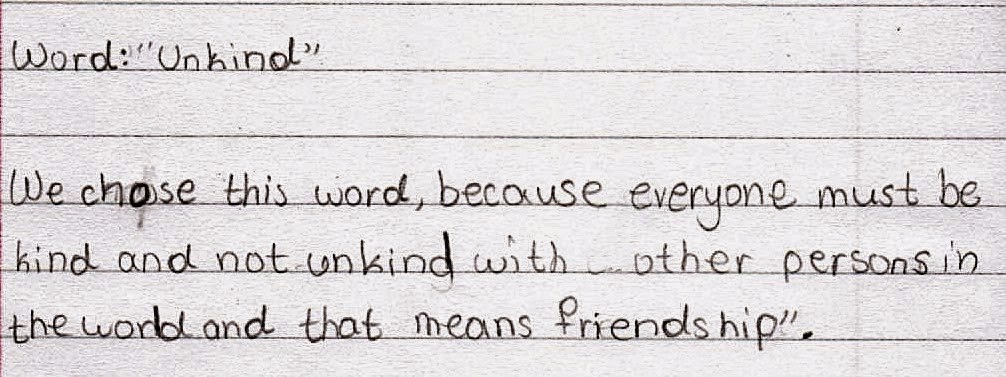 Word: "Unkind"
We chose this word, because everyone must be
kind and not unkind with other persons in
the world and that means friendship".